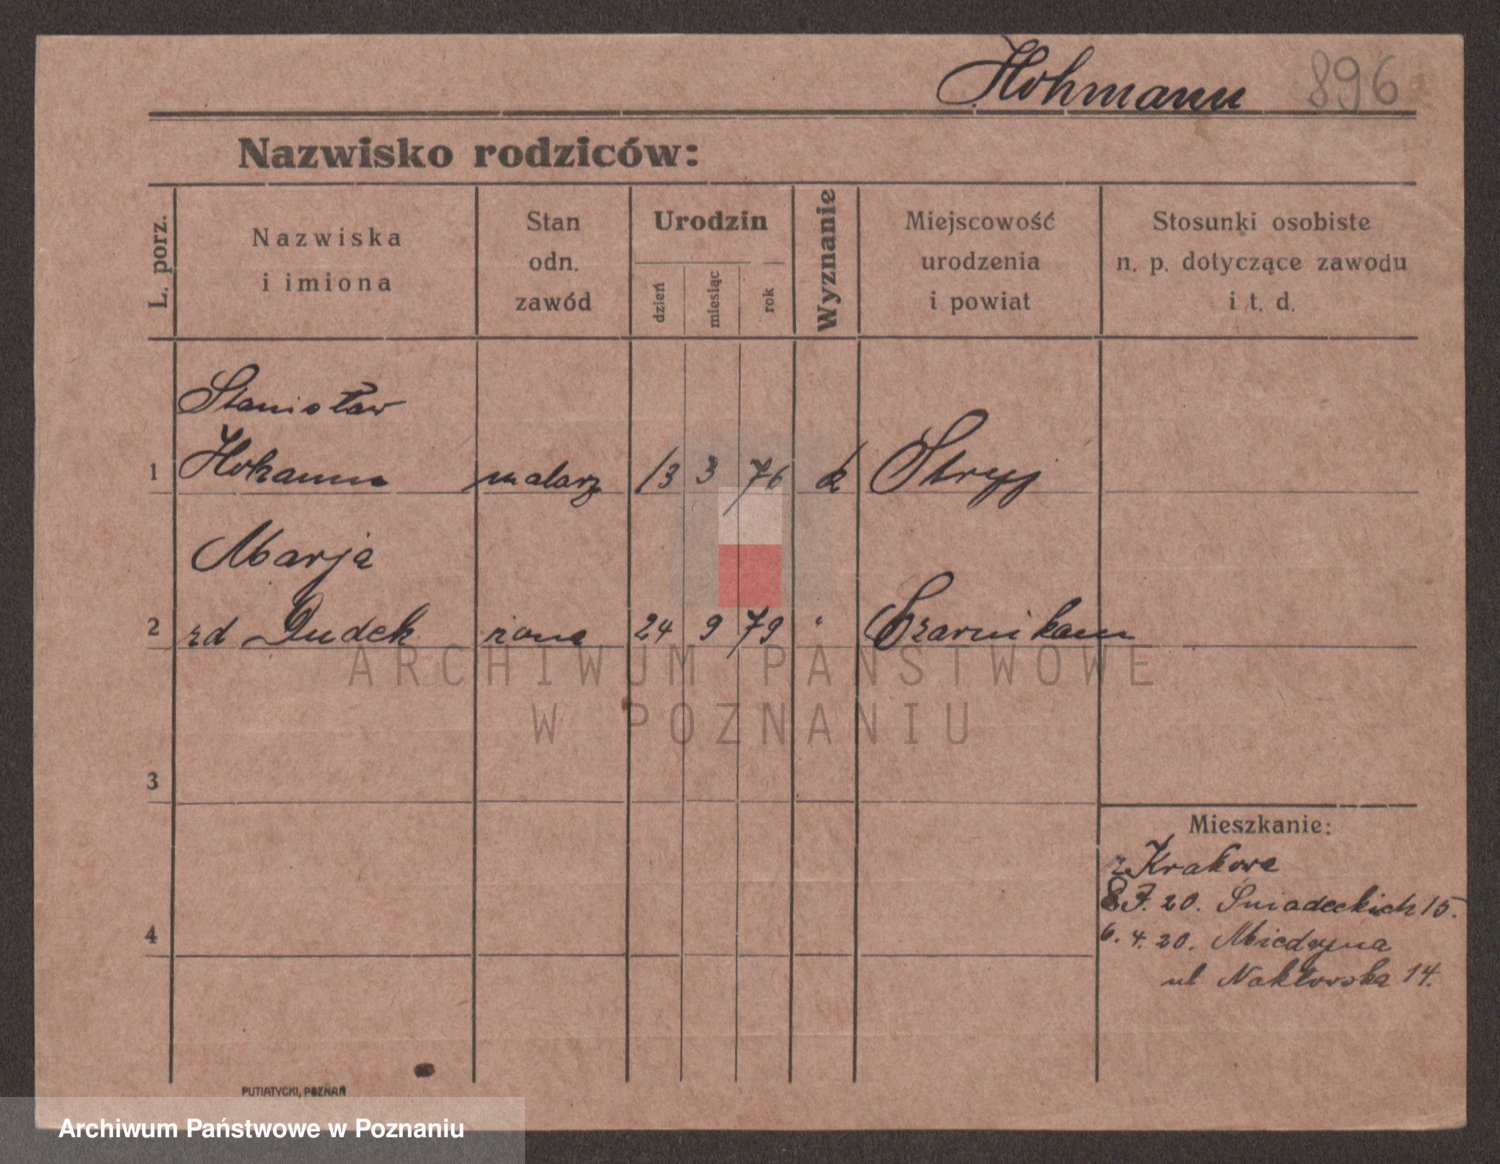 Hohmann 896
Nazwisko rodziców:
L. porz.
Nazwiska
i imiona
Stan
odn.
zawód
Urodzin
dzień
miesiąc
rok
Wyznanie
Miejscowość
urodzenia
i powiat
Stosunki osobiste
n. p. dotyczące zawodu
i t. d.
Stanisław
1 Hohmann malarz 13 3 76 k Stryj
Marja
2 zd Dudek żona 24 9 79 " Czarnikau
ARCHIWUM PAŃSTWOWE
W POZNANIU
3
Mieszkanie:
z Krakowa
8.3.20. Śniadeckich 15.
4
6.4.20. Miedzyna
ul Nakłowska 14.
PUTIATYCKI, POZNAŃ
Archiwum Państwowe w Poznaniu